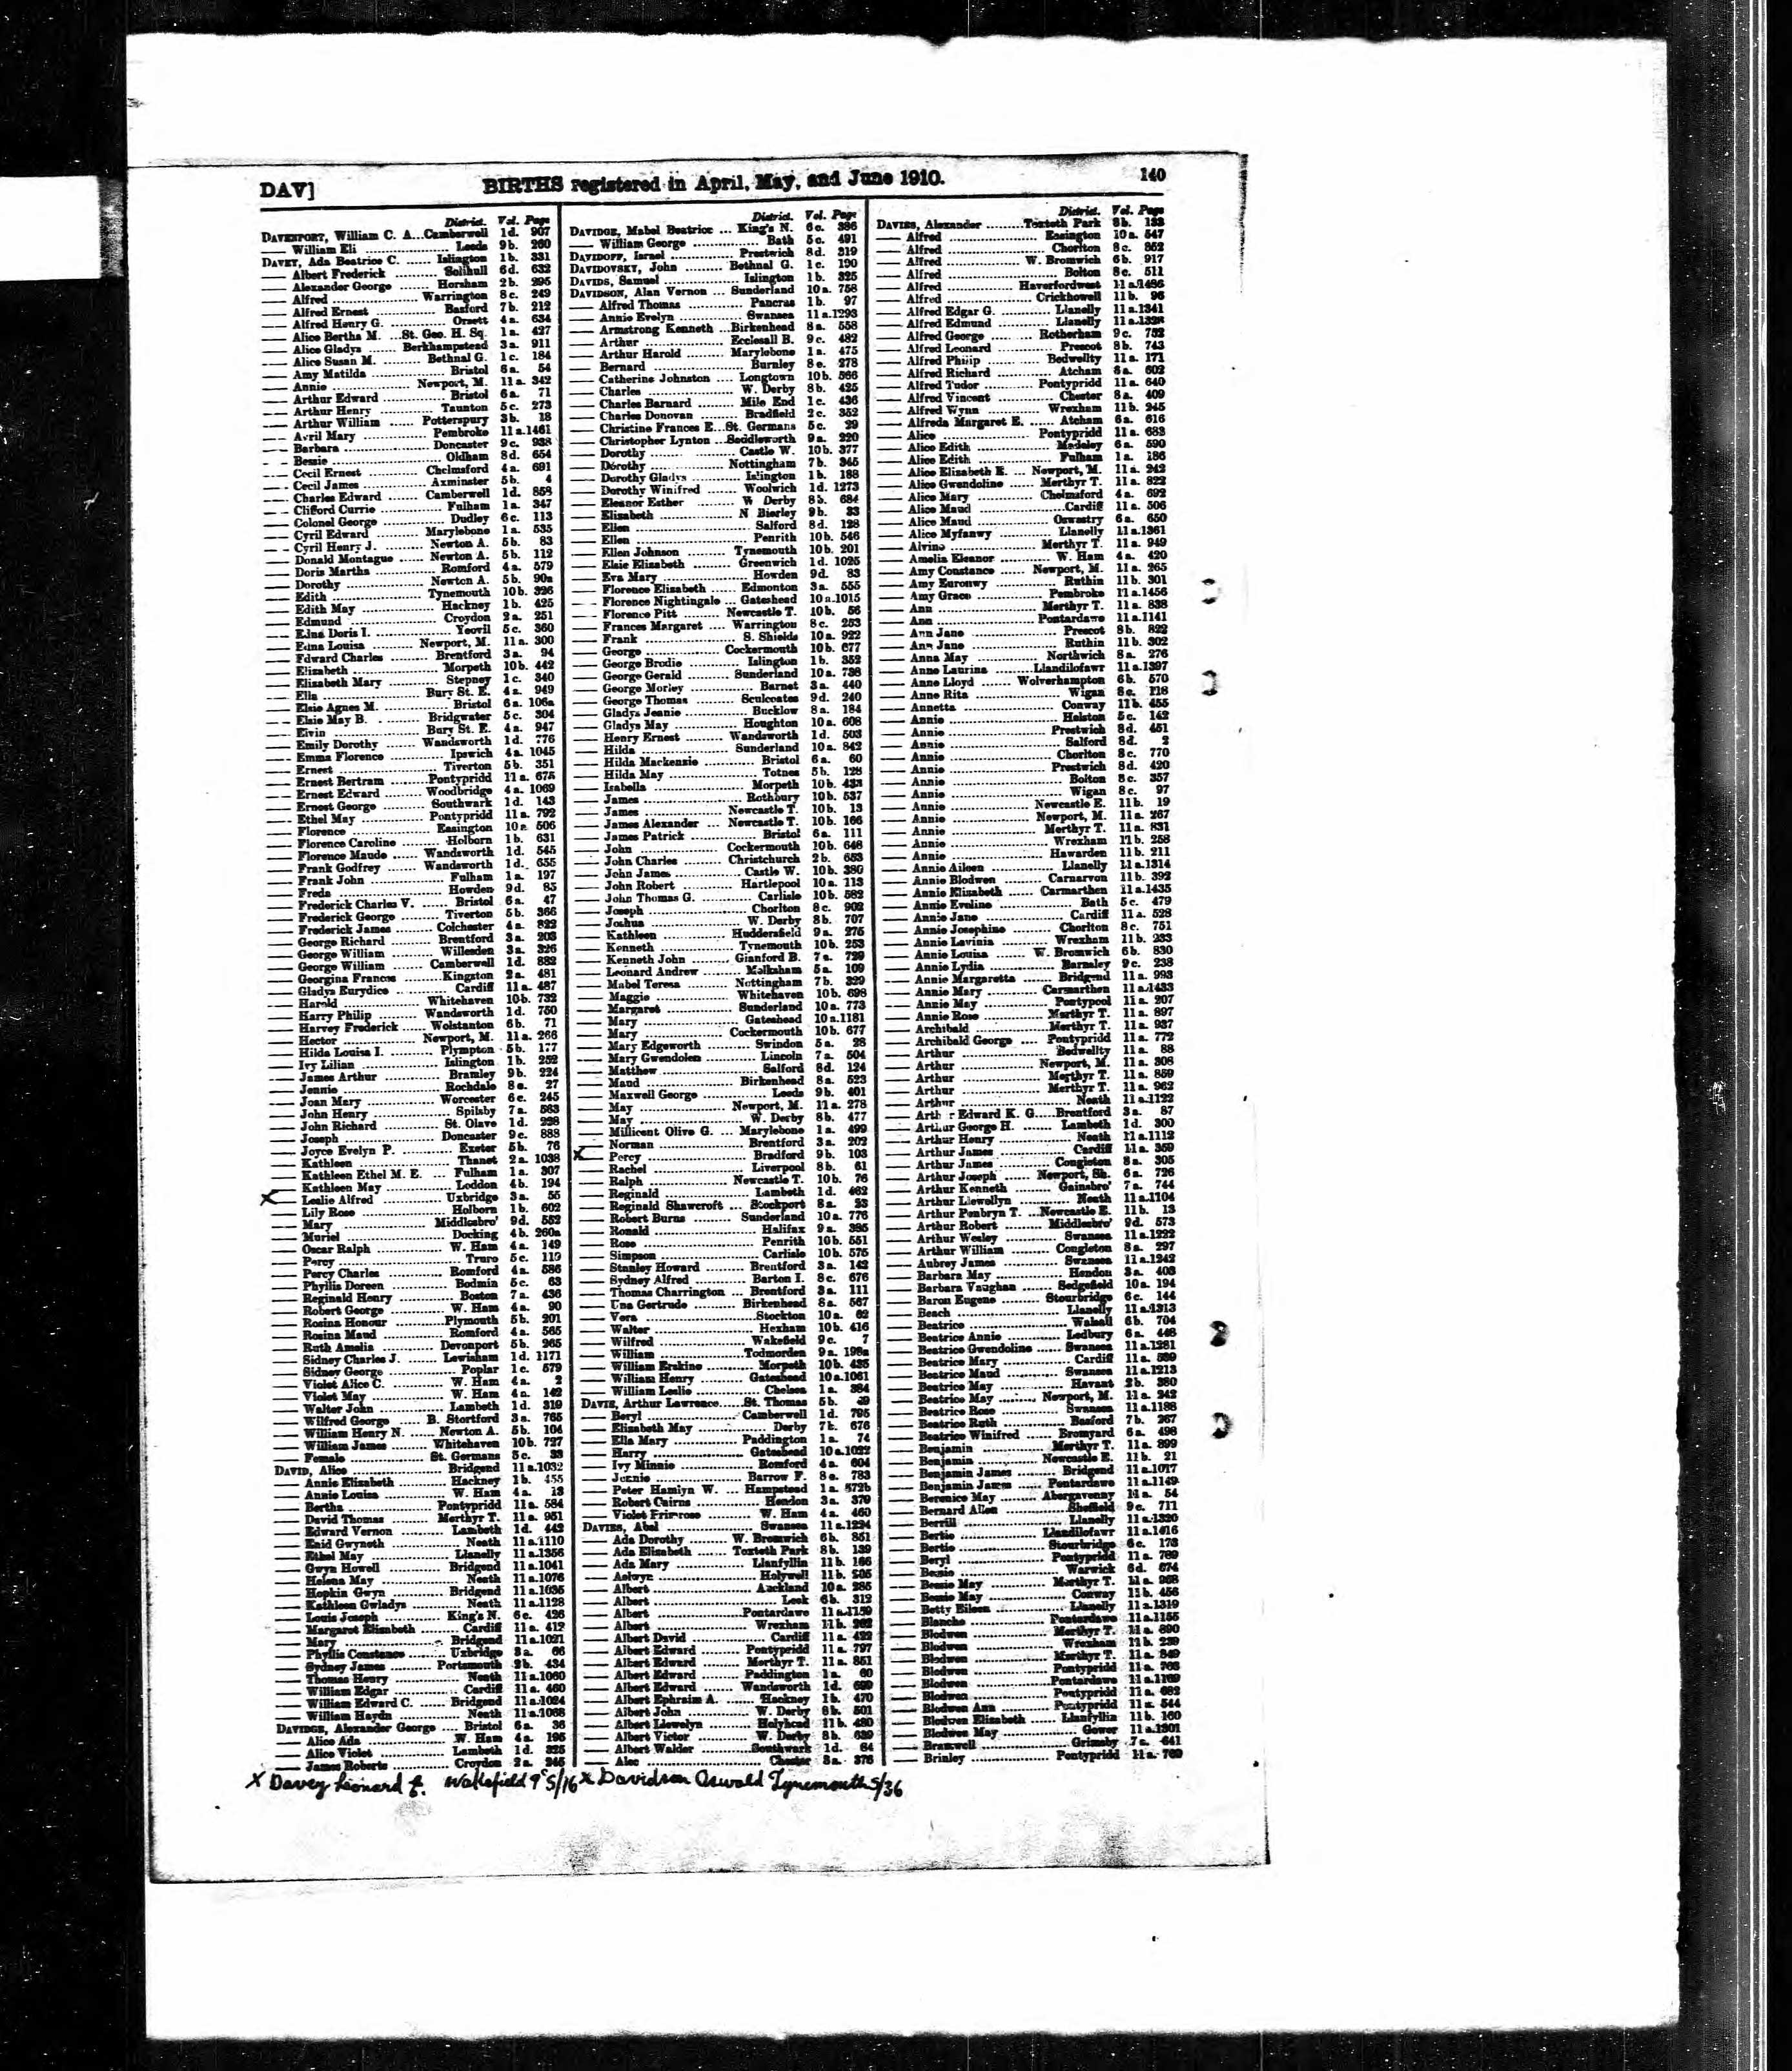 DAV]
BIRTHS registered in April, May, and June 1910.
140
District. Vol. Page
DAVENPORT, William C. A...Camberwell 1d. 907
—— William Eli ... Leeds 9b. 260
DAVEY, Ada Beatrice C. ... Islington 1b. 331
—— Albert Frederick ... Solihull 6d. 632
—— Alexander George ... Horsham 2b. 295
—— Alfred ... Warrington 8c. 249
—— Alfred Ernest ... Basford 7b. 212
—— Alfred Henry G. ... Orsett 4a. 634
—— Alice Bertha M. ...St. Geo. H. Sq. 1a. 427
—— Alice Gladys ... Berkhampstead 3a. 911
—— Alice Susan M. ... Bethnal G. 1c. 184
—— Amy Matilda ... Bristol 6a. 54
—— Annie ... Newport, M. 11a. 342
—— Arthur Edward ... Bristol 6a. 71
—— Arthur Henry ... Taunton 5c. 273
—— Arthur William ... Potterspury 3b. 18
—— Avril Mary ... Pembroke 11a.1461
—— Barbara ... Doncaster 9c. 938
—— Bessie ... Oldham 8d. 654
—— Cecil Ernest ... Chelmsford 4a. 691
—— Cecil James ... Axminster 5b. 4
—— Charles Edward ... Camberwell 1d. 858
—— Clifford Currie ... Fulham 1a. 347
—— Colonel George ... Dudley 6c. 113
—— Cyril Edward ... Marylebone 1a. 535
—— Cyril Henry J. ... Newton A. 5b. 83
—— Donald Montague ... Newton A. 5b. 112
—— Doris Martha ... Romford 4a. 579
—— Dorothy ... Newton A. 5b. 90a
—— Edith ... Tynemouth 10b. 326
—— Edith May ... Hackney 1b. 425
—— Edmund ... Croydon 2a. 251
—— Edna Doris I. ... Yeovil 5c. 360
—— Edna Louisa ... Newport, M. 11a. 300
—— Edward Charles ... Brentford 3a. 94
—— Elizabeth ... Morpeth 10b. 442
—— Elizabeth Mary ... Stepney 1c. 340
—— Ella ... Bury St. E. 4a. 949
—— Elsie Agnes M. ... Bristol 6a. 106a
—— Elsie May B. ... Bridgwater 5c. 304
—— Elvin ... Bury St. E. 4a. 947
—— Emily Dorothy ... Wandsworth 1d. 776
—— Emma Florence ... Ipswich 4a. 1045
—— Ernest ... Tiverton 5b. 351
—— Ernest Bertram ... Pontypridd 11a. 675
—— Ernest Edward ... Woodbridge 4a. 1069
—— Ernest George ... Southwark 1d. 143
—— Ethel May ... Pontypridd 11a. 792
—— Florence ... Easington 10a. 506
—— Florence Caroline ... Holborn 1b. 631
—— Florence Maude ... Wandsworth 1d. 545
—— Frank Godfrey ... Wandsworth 1d. 655
—— Frank John ... Fulham 1a. 197
—— Freda ... Howden 9d. 85
—— Frederick Charles V. ... Bristol 6a. 47
—— Frederick George ... Tiverton 5b. 366
—— Frederick James ... Colchester 4a. 822
—— George Richard ... Brentford 3a. 203
—— George William ... Willesden 3a. 326
—— George William ... Camberwell 1d. 882
—— Georgina Frances ... Kingston 2a. 481
—— Gladys Eurydice ... Cardiff 11a. 487
—— Harold ... Whitehaven 10b. 732
—— Harry Philip ... Wandsworth 1d. 750
—— Harvey Frederick ... Wolstanton 6b. 71
—— Hector ... Newport, M. 11a. 266
—— Hilda Louisa I. ... Plympton 5b. 177
—— Ivy Lilian ... Islington 1b. 252
—— James Arthur ... Bramley 9b. 224
—— Jennie ... Rochdale 8e. 27
—— Joan Mary ... Worcester 6c. 245
—— John Henry ... Spilsby 7a. 563
—— John Richard ... St. Olave 1d. 228
—— Joseph ... Doncaster 9c. 888
—— Joyce Evelyn P. ... Exeter 5b. 76
—— Kathleen ... Thanet 2a. 1038
—— Kathleen Ethel M. E. ... Fulham 1a. 307
—— Kathleen May ... Loddon 4b. 194
X —— Leslie Alfred ... Uxbridge 3a. 55
—— Lily Rose ... Holborn 1b. 602
—— Mary ... Middlesbro' 9d. 552
—— Muriel ... Docking 4b. 260a
—— Oscar Ralph ... W. Ham 4a. 149
—— Percy ... Truro 5c. 119
—— Percy Charles ... Romford 4a. 586
—— Phyllis Doreen ... Bodmin 5c. 63
—— Reginald Henry ... Boston 7a. 436
—— Robert George ... W. Ham 4a. 90
—— Rosina Honour ... Plymouth 5b. 201
—— Rosina Maud ... Romford 4a. 565
—— Ruth Amelia ... Devonport 5b. 265
—— Sidney Charles J. ... Lewisham 1d. 1171
—— Sidney George ... Poplar 1c. 579
—— Violet Alice C. ... W. Ham 4a. 2
—— Violet May C. ... W. Ham 4a. 142
—— Walter John ... Lambeth 1d. 319
—— Wilfred George ... B. Stortford 3a. 765
—— William Henry N. ... Newton A. 5b. 104
—— William James ... Whitehaven 10b. 727
—— Female ... St. Germans 5c. 33
DAVID, Alice ... Bridgend 11a.1032
—— Annie Elizabeth ... Hackney 1b. 455
—— Annie Louisa ... W. Ham 4a. 13
—— Bertha ... Pontypridd 11a. 584
—— David Thomas ... Merthyr T. 11a. 951
—— Edward Vernon ... Lambeth 1d. 442
—— Enid Gwyneth ... Neath 11a.1110
—— Ethel May ... Llanelly 11a.1356
—— Gwyn Howell ... Bridgend 11a.1041
—— Helena May ... Neath 11a.1076
—— Hopkin Gwyn ... Bridgend 11a.1035
—— Kathleen Gwladys ... Neath 11a.1128
—— Louis Joseph ... King's N. 6c. 426
—— Margaret Elizabeth ... Cardiff 11a. 412
—— Mary ... Bridgend 11a.1021
—— Phyllis Constance ... Uxbridge 3a. 66
—— Sydney James ... Portsmouth 2b. 434
—— Thomas Henry ... Neath 11a.1060
—— William Edgar ... Cardiff 11a. 460
—— William Edward C. ... Bridgend 11a.1024
—— William Haydn ... Neath 11a.1068
DAVIDGE, Alexander George ... Bristol 6a. 36
—— Alice Ada ... W. Ham 4a. 195
—— Alice Violet ... Lambeth 1d. 325
—— James Roberts ... Croydon 2a. 345
X Davey Leonard f. Wakefield 9c S/16
District. Vol. Page
DAVIDGE, Mabel Beatrice ... King's N. 6c. 386
—— William George ... Bath 5c. 491
DAVIDOFF, Israel ... Prestwich 8d. 319
DAVIDOVSKY, John ... Bethnal G. 1c. 190
DAVIDS, Samuel ... Islington 1b. 325
DAVIDSON, Alan Vernon ... Sunderland 10a. 758
—— Alfred Thomas ... Pancras 1b. 97
—— Annie Evelyn ... Swansea 11a.1293
—— Armstrong Kenneth ...Birkenhead 8a. 558
—— Arthur ... Ecclesall B. 9c. 482
—— Arthur Harold ... Marylebone 1a. 475
—— Bernard ... Burnley 8e. 278
—— Catherine Johnston ... Longtown 10b. 566
—— Charles ... W. Derby 8b. 425
—— Charles Barnard ... Mile End 1c. 436
—— Charles Donovan ... Bradfield 2c. 352
—— Christine Frances E...St. Germans 5c. 29
—— Christopher Lynton ...Saddleworth 9a. 220
—— Dorothy ... Castle W. 10b. 377
—— Dorothy ... Nottingham 7b. 345
—— Dorothy Gladys ... Islington 1b. 188
—— Dorothy Winifred ... Woolwich 1d. 1273
—— Eleanor Esther ... W Derby 8b. 684
—— Elizabeth ... N Bierley 9b. 33
—— Ellen ... Salford 8d. 128
—— Ellen ... Penrith 10b. 546
—— Ellen Johnson ... Tynemouth 10b. 201
—— Elsie Elizabeth ... Greenwich 1d. 1025
—— Eva Mary ... Howden 9d. 83
—— Florence Elizabeth ... Edmonton 3a. 555
—— Florence Nightingale ... Gateshead 10a.1015
—— Florence Pitt ... Newcastle T. 10b. 56
—— Frances Margaret ... Warrington 8c. 253
—— Frank ... S. Shields 10a. 922
—— George ... Cockermouth 10b. 677
—— George Brodie ... Islington 1b. 352
—— George Gerald ... Sunderland 10a. 738
—— George Morley ... Barnet 3a. 440
—— George Thomas ... Sculcoates 9d. 240
—— Gladys Jeanie ... Bucklow 8a. 184
—— Gladys May ... Houghton 10a. 608
—— Henry Ernest ... Wandsworth 1d. 503
—— Hilda ... Sunderland 10a. 842
—— Hilda Mackenzie ... Bristol 6a. 60
—— Hilda May ... Totnes 5b. 128
—— Isabella ... Morpeth 10b. 433
—— James ... Rothbury 10b. 537
—— James ... Newcastle T. 10b. 13
—— James Alexander ... Newcastle T. 10b. 166
—— James Patrick ... Bristol 6a. 111
—— John ... Cockermouth 10b. 646
—— John Charles ... Christchurch 2b. 653
—— John James ... Castle W. 10b. 380
—— John Robert ... Hartlepool 10a. 113
—— John Thomas G. ... Carlisle 10b. 582
—— Joseph ... Chorlton 8c. 902
—— Joshua ... W. Derby 8b. 707
—— Kathleen ... Huddersfield 9a. 275
—— Kenneth ... Tynemouth 10b. 253
—— Kenneth John ... Glanford B. 7a. 729
—— Leonard Andrew ... Melksham 5a. 109
—— Mabel Teresa ... Nottingham 7b. 329
—— Maggie ... Whitehaven 10b. 698
—— Margaret ... Sunderland 10a. 773
—— Mary ... Gateshead 10a.1181
—— Mary ... Cockermouth 10b. 677
—— Mary Edgeworth ... Swindon 5a. 28
—— Mary Gwendolen ... Lincoln 7a. 504
—— Matthew ... Salford 8d. 124
—— Maud ... Birkenhead 8a. 523
—— Maxwell George ... Leeds 9b. 401
—— May ... Newport, M. 11a. 278
—— May ... W. Derby 8b. 477
—— Millicent Olive G. ... Marylebone 1a. 499
—— Norman ... Brentford 3a. 202
X —— Percy ... Bradford 9b. 103
—— Rachel ... Liverpool 8b. 61
—— Ralph ... Newcastle T. 10b. 76
—— Reginald ... Lambeth 1d. 462
—— Reginald Shawcroft ... Stockport 8a. 23
—— Robert Burns ... Sunderland 10a. 776
—— Ronald ... Halifax 9a. 385
—— Rose ... Penrith 10b. 551
—— Simpson ... Carlisle 10b. 575
—— Stanley Howard ... Brentford 3a. 142
—— Sydney Alfred ... Barton I. 8c. 676
—— Thomas Charrington ... Brentford 3a. 111
—— Una Gertrude ... Birkenhead 8a. 567
—— Vera ... Stockton 10a. 62
—— Walter ... Hexham 10b. 416
—— Wilfred ... Wakefield 9c. 7
—— William ... Todmorden 9a. 198a
—— William Erskine ... Morpeth 10b. 435
—— William Henry ... Gateshead 10a.1061
—— William Leslie ... Chelsea 1a. 384
DAVIE, Arthur Lawrence...St. Thomas 5b. 39
—— Beryl ... Camberwell 1d. 795
—— Elizabeth May ... Derby 7b. 676
—— Ella Mary ... Paddington 1a. 74
—— Harry ... Gateshead 10a.1022
—— Ivy Minnie ... Romford 4a. 604
—— Jennie ... Barrow F. 8e. 783
—— Peter Hamlyn W. ... Hampstead 1a. 572b
—— Robert Cairns ... Hendon 3a. 379
—— Violet Primrose ... W. Ham 4a. 460
DAVIES, Abel ... Swansea 11a.1224
—— Ada Dorothy ... W. Bromwich 6b. 851
—— Ada Elizabeth ... Toxteth Park 8b. 139
—— Ada Mary ... Llanfyllin 11b. 166
—— Aelwyn ... Holywell 11b. 205
—— Albert ... Auckland 10a. 285
—— Albert ... Leek 6b. 312
—— Albert ... Pontardawe 11a.1159
—— Albert ... Wrexham 11b. 262
—— Albert David ... Cardiff 11a. 422
—— Albert Edward ... Pontypridd 11a. 797
—— Albert Edward ... Merthyr T. 11a. 851
—— Albert Edward ... Paddington 1a. 60
—— Albert Edward ... Wandsworth 1d. 699
—— Albert Ephraim A. ... Hackney 1b. 470
—— Albert John ... W. Derby 8b. 501
—— Albert Llewelyn ... Holyhead 11b. 480
—— Albert Victor ... W. Derby 8b. 639
—— Albert Walder ... Southwark 1d. 64
—— Alec ... Chester 8a. 376
X Davidson Oswald Tynemouth S/36
District. Vol. Page
DAVIES, Alexander ... Toxteth Park 8b. 133
—— Alfred ... Easington 10a. 547
—— Alfred ... Chorlton 8c. 852
—— Alfred ... W. Bromwich 6b. 917
—— Alfred ... Bolton 8c. 511
—— Alfred ... Haverfordwest 11a.1486
—— Alfred ... Crickhowell 11b. 96
—— Alfred Edgar G. ... Llanelly 11a.1341
—— Alfred Edmund ... Llanelly 11a.1328
—— Alfred George ... Rotherham 9c. 752
—— Alfred Leonard ... Prescot 8b. 743
—— Alfred Philip ... Bedwellty 11a. 171
—— Alfred Richard ... Atcham 6a. 602
—— Alfred Tudor ... Pontypridd 11a. 640
—— Alfred Vincent ... Chester 8a. 409
—— Alfred Wynn ... Wrexham 11b. 245
—— Alfreda Margaret E. ... Atcham 6a. 616
—— Alice ... Pontypridd 11a. 683
—— Alice Edith ... Madeley 6a. 590
—— Alice Edith ... Fulham 1a. 186
—— Alice Elizabeth E. ... Newport, M. 11a. 242
—— Alice Gwendoline ... Merthyr T. 11a. 822
—— Alice Mary ... Chelmsford 4a. 692
—— Alice Maud ... Cardiff 11a. 506
—— Alice Maud ... Oswestry 6a. 650
—— Alice Myfanwy ... Llanelly 11a.1361
—— Alvina ... Merthyr T. 11a. 949
—— Amelia Eleanor ... W. Ham 4a. 420
—— Amy Constance ... Newport, M. 11a. 265
—— Amy Euronwy ... Ruthin 11b. 301
—— Amy Grace ... Pembroke 11a.1456
—— Ann ... Merthyr T. 11a. 838
—— Ann ... Pontardawe 11a.1141
—— Ann Jane ... Prescot 8b. 822
—— Ann Jane ... Ruthin 11b. 302
—— Anna May ... Northwich 8a. 276
—— Anne Laurina ... Llandilofawr 11a.1397
—— Anne Lloyd ... Wolverhampton 6b. 570
—— Anne Rita ... Wigan 8c. 118
—— Annetta ... Conway 11b. 455
—— Annie ... Helston 5c. 142
—— Annie ... Prestwich 8d. 451
—— Annie ... Salford 8d. 2
—— Annie ... Chorlton 8c. 770
—— Annie ... Prestwich 8d. 420
—— Annie ... Bolton 8c. 357
—— Annie ... Wigan 8c. 97
—— Annie ... Newcastle E. 11b. 19
—— Annie ... Newport, M. 11a. 267
—— Annie ... Merthyr T. 11a. 831
—— Annie ... Wrexham 11b. 258
—— Annie ... Hawarden 11b. 211
—— Annie Aileen ... Llanelly 11a.1314
—— Annie Blodwen ... Carnarvon 11b. 392
—— Annie Elizabeth ... Carmarthen 11a.1435
—— Annie Eveline ... Bath 5c. 479
—— Annie Jane ... Cardiff 11a. 528
—— Annie Josephine ... Chorlton 8c. 751
—— Annie Lavinia ... Wrexham 11b. 233
—— Annie Louisa ... W. Bromwich 6b. 830
—— Annie Lydia ... Barnsley 9c. 238
—— Annie Margaretta ... Bridgend 11a. 993
—— Annie Mary ... Carmarthen 11a.1433
—— Annie May ... Pontypool 11a. 207
—— Annie Rose ... Merthyr T. 11a. 897
—— Archibald ... Merthyr T. 11a. 937
—— Archibald George ... Pontypridd 11a. 772
—— Arthur ... Bedwellty 11a. 88
—— Arthur ... Newport, M. 11a. 308
—— Arthur ... Merthyr T. 11a. 859
—— Arthur ... Merthyr T. 11a. 962
—— Arthur ... Neath 11a.1122
—— Arthur Edward K. G...Brentford 3a. 87
—— Arthur George H. ... Lambeth 1d. 300
—— Arthur Henry ... Neath 11a.1112
—— Arthur James ... Cardiff 11a. 359
—— Arthur James ... Congleton 8a. 305
—— Arthur Joseph ... Newport, Sh. 6a. 726
—— Arthur Kenneth ... Gainsbro' 7a. 744
—— Arthur Llewellyn ... Neath 11a.1104
—— Arthur Penbryn T. ...Newcastle E. 11b. 13
—— Arthur Robert ... Middlesbro' 9d. 573
—— Arthur Wesley ... Swansea 11a.1222
—— Arthur William ... Congleton 8a. 297
—— Aubrey James ... Swansea 11a.1242
—— Barbara May ... Hendon 3a. 403
—— Barbara Vaughan ... Sedgefield 10a. 194
—— Baron Eugene ... Stourbridge 6c. 144
—— Beach ... Llanelly 11a.1313
—— Beatrice ... Walsall 6b. 704
—— Beatrice Annie ... Ledbury 6a. 448
—— Beatrice Gwendoline ... Swansea 11a.1281
—— Beatrice Mary ... Cardiff 11a. 539
—— Beatrice Maud ... Swansea 11a.1213
—— Beatrice May ... Havant 2b. 380
—— Beatrice May ... Newport, M. 11a. 242
—— Beatrice Rose ... Swansea 11a.1188
—— Beatrice Ruth ... Basford 7b. 267
—— Beatrice Winifred ... Bromyard 6a. 498
—— Benjamin ... Merthyr T. 11a. 899
—— Benjamin ... Newcastle E. 11b. 21
—— Benjamin James ... Bridgend 11a.1017
—— Benjamin James ... Pontardawe 11a.1149
—— Berenice May ... Abergavenny 11a. 54
—— Bernard Allen ... Sheffield 9c. 711
—— Berrill ... Llanelly 11a.1320
—— Bertie ... Llandilofawr 11a.1416
—— Bertie ... Stourbridge 6c. 173
—— Beryl ... Pontypridd 11a. 789
—— Bessie ... Warwick 6d. 674
—— Bessie May ... Merthyr T. 11a. 968
—— Bessie May ... Conway 11b. 456
—— Betty Eileen ... Llanelly 11a.1319
—— Blanche ... Pontardawe 11a.1155
—— Blodwen ... Merthyr T. 11a. 890
—— Blodwen ... Wrexham 11b. 239
—— Blodwen ... Merthyr T. 11a. 849
—— Blodwen ... Pontypridd 11a. 768
—— Blodwen ... Pontardawe 11a.1169
—— Blodwen ... Pontypridd 11a. 682
—— Blodwen Ann ... Pontypridd 11a. 544
—— Blodwen Elizabeth ... Llanfyllin 11b. 160
—— Blodwen May ... Gower 11a.1301
—— Bramwell ... Grimsby 7a. 641
—— Brinley ... Pontypridd 11a. 769